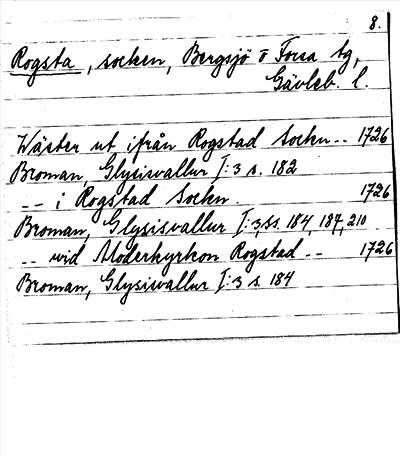 8.
Rogsta, socken, Bergsjö o Forsa tg,
Gävleb. l.
Wäster ut ifrån Rogstad Sockn -- 1726
Broman, Glysisvallur I:3 s. 182
-- i Rogstad Sockn. 1726
Broman, Glysisvallur I:3, ss. 184, 187, 210
-- wid Moderkyrkon Rogstad -- 1726
Broman, Glysisvallur I:3 s. 184